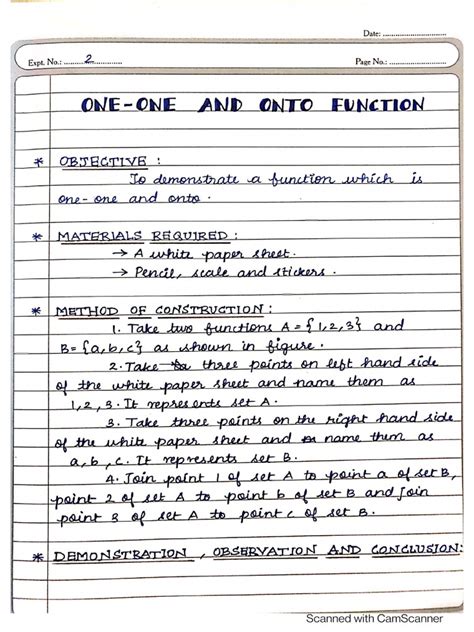 Date: ..............................
Expt. No.: ..........2.............. Page No.: ............................
ONE-ONE AND ONTO FUNCTION
* OBJECTIVE :
To demonstrate a function which is
one-one and onto .
* MATERIALS REQUIRED :
→ A white paper sheet.
→ Pencil, scale and stickers .
* METHOD OF CONSTRUCTION :
1. Take two functions A = {1,2,3} and
B= {a,b,c} as shown in figure .
2. Take three points on left hand side
of the white paper sheet and name them as
1, 2, 3. It represents set A.
3. Take three points on the right hand side
of the white paper sheet and name them as
a, b, c. It represents set B.
4. Join point 1 of set A to point a of set B,
point 2 of set A to point b of set B and join
point 3 of set A to point c of set B.
* DEMONSTRATION , OBSERVATION AND CONCLUSION:
Scanned with CamScanner